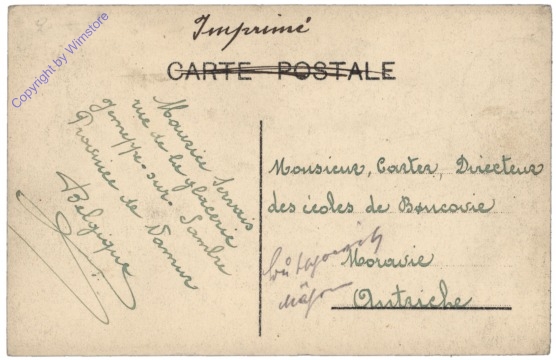 Imprimé
CARTE POSTALE
Maurice Servais
rue de la glacerie
Jemeppe-sur-Sambre
Province de Namur
Belgique
Monsieur, Carter, Directeur
des écoles de Boncovie
Moravie
Autriche
Copyright by Wimstore